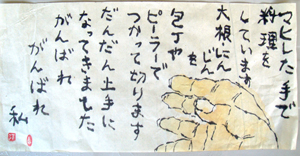 マヒした手で
料理を
しています
大根にんじんを
包丁や
ピーラーで
つかって切ります
だんだん上手に
なってきました
がんばれ
がんばれ
私